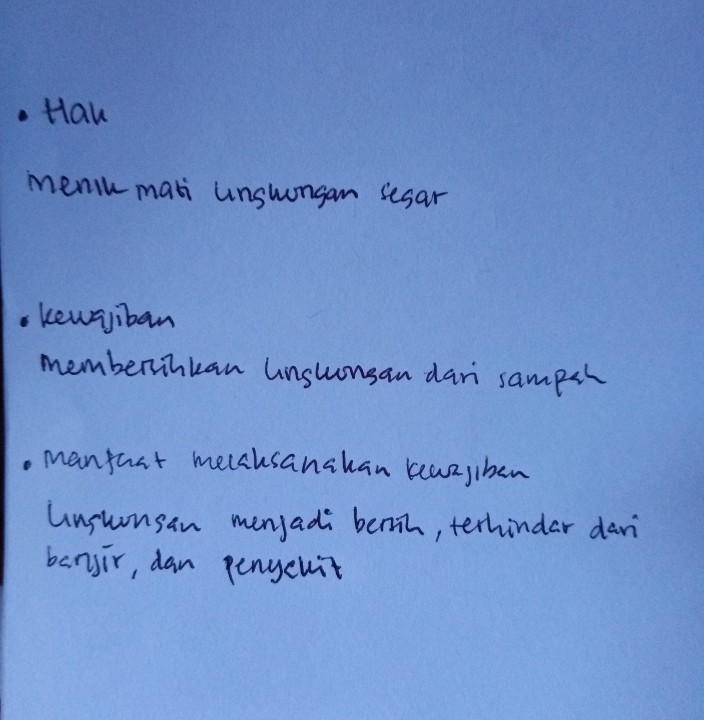 • Hak
menikmati lingkungan segar
• kewajiban
membersihkan lingkungan dari sampah
• manfaat melaksanakan kewajiban
lingkungan menjadi bersih, terhindar dari
banjir, dan penyakit